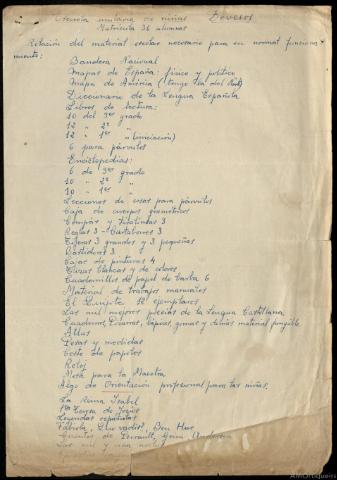 Escuela unitaria de niñas Devesos
Matrícula 36 alumnas
Relación del material escolar necesario para su normal funciona-
miento:
Bandera Nacional
Mapas de España: físico y político
Mapa de América (tengo la del
Diccionario de la Lengua Española
Libros de lectura:
10 del 3er grado
12 " 2º "
12 " 1er " (iniciación)
6 para párvulos
Enciclopedias:
6 de 3er grado
10 " 2º "
10 " 1er "
Lecciones de cosas para párvulos
Caja de cuerpos geométricos
Compás y 3
Reglas 3 - Cartabones 3
Tijeras 3 grandes y 3 pequeñas
Bastidores 3
Cajas de pinturas 4
Tizas blancas y de colores
Cuadernillos de papel de barba 6
Material de trabajos manuales
El 12 ejemplares
Las mil mejores poesías de la Lengua Castellana
Cuadernos, Pizarras, lápices, gomas y demás material fungible
Atlas
Pesas y medidas
Cesto de papeles
Reloj
Mesa para la Maestra
Algo de Orientación profesional para las niñas.
La reina Isabel
Sta Teresa de Jesús
Leyendas españolas
Fabiola, Quo vadis?, Ben Hur
Cuentos de Perrault, Grim Anderson
Las mil y una noches